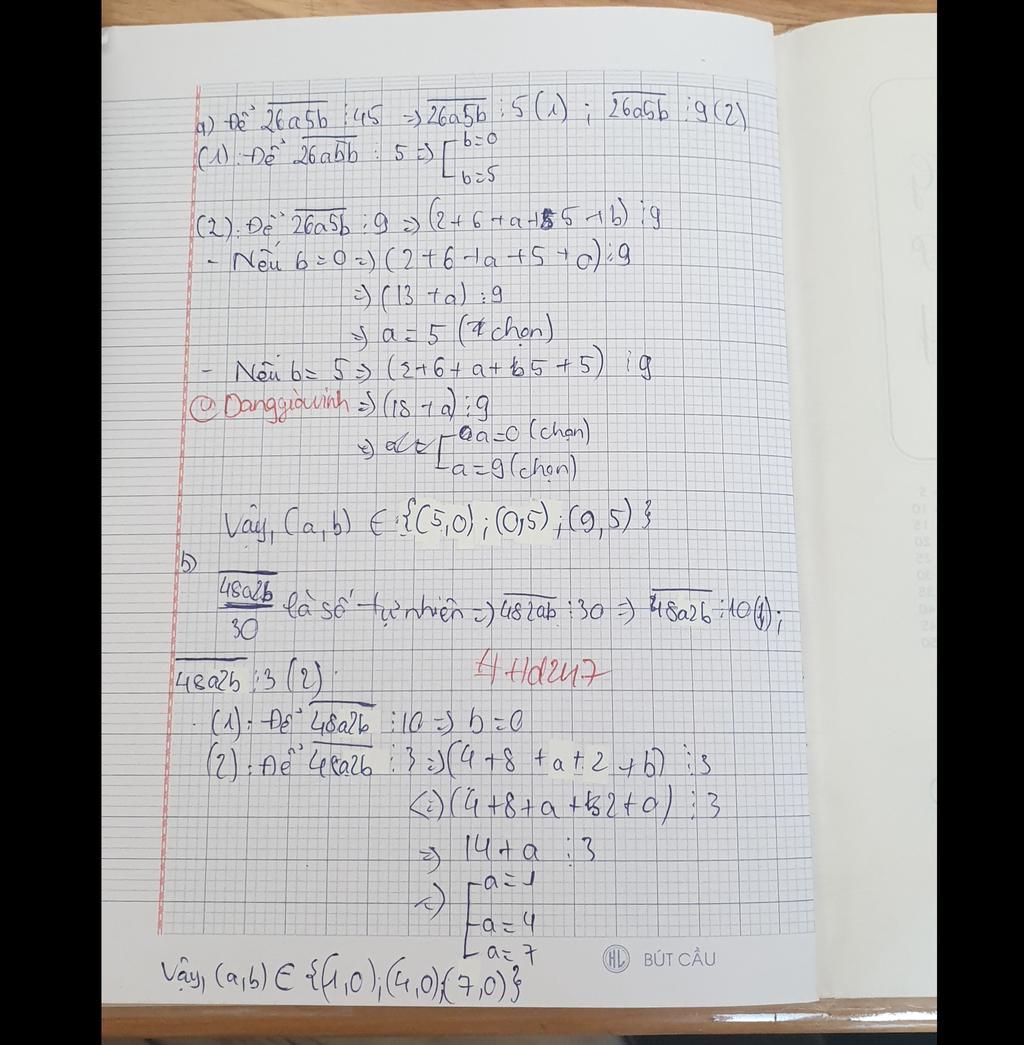 a) Để 26a5b ⋮ 45 => 26a5b ⋮ 5 (1) ; 26a5b ⋮ 9 (2)
(1): Để 26a5b ⋮ 5 => [ b=0
b=5
(2): Để 26a5b ⋮ 9 => (2+6+a+5+b) ⋮ 9
- Nếu b=0 => (2+6+a+5+0) ⋮ 9
=> (13+a) ⋮ 9
=> a = 5 (chọn)
- Nếu b= 5 => (2+6+a+5+5) ⋮ 9
Danggiauinh => (18+a) ⋮ 9
=> [ a=0 (chọn)
a=9 (chọn)
Vậy, (a,b) ∈ {(5,0) ; (0,5) ; (9,5)}
b)
48a2b/30 là số tự nhiên => 482ab ⋮ 30 => 48a2b ⋮ 10 (1);
48a2b ⋮ 3 (2).
(1): Để 48a2b ⋮ 10 => b=0
(2): Để 48a2b ⋮ 3 => (4+8+a+2+b) ⋮ 3
<=> (4+8+a+2+0) ⋮ 3
=> 14+a ⋮ 3
=> [ a=1
a=4
a=7
HL BÚT CẦU
Vậy, (a,b) ∈ {(1,0);(4,0);(7,0)}